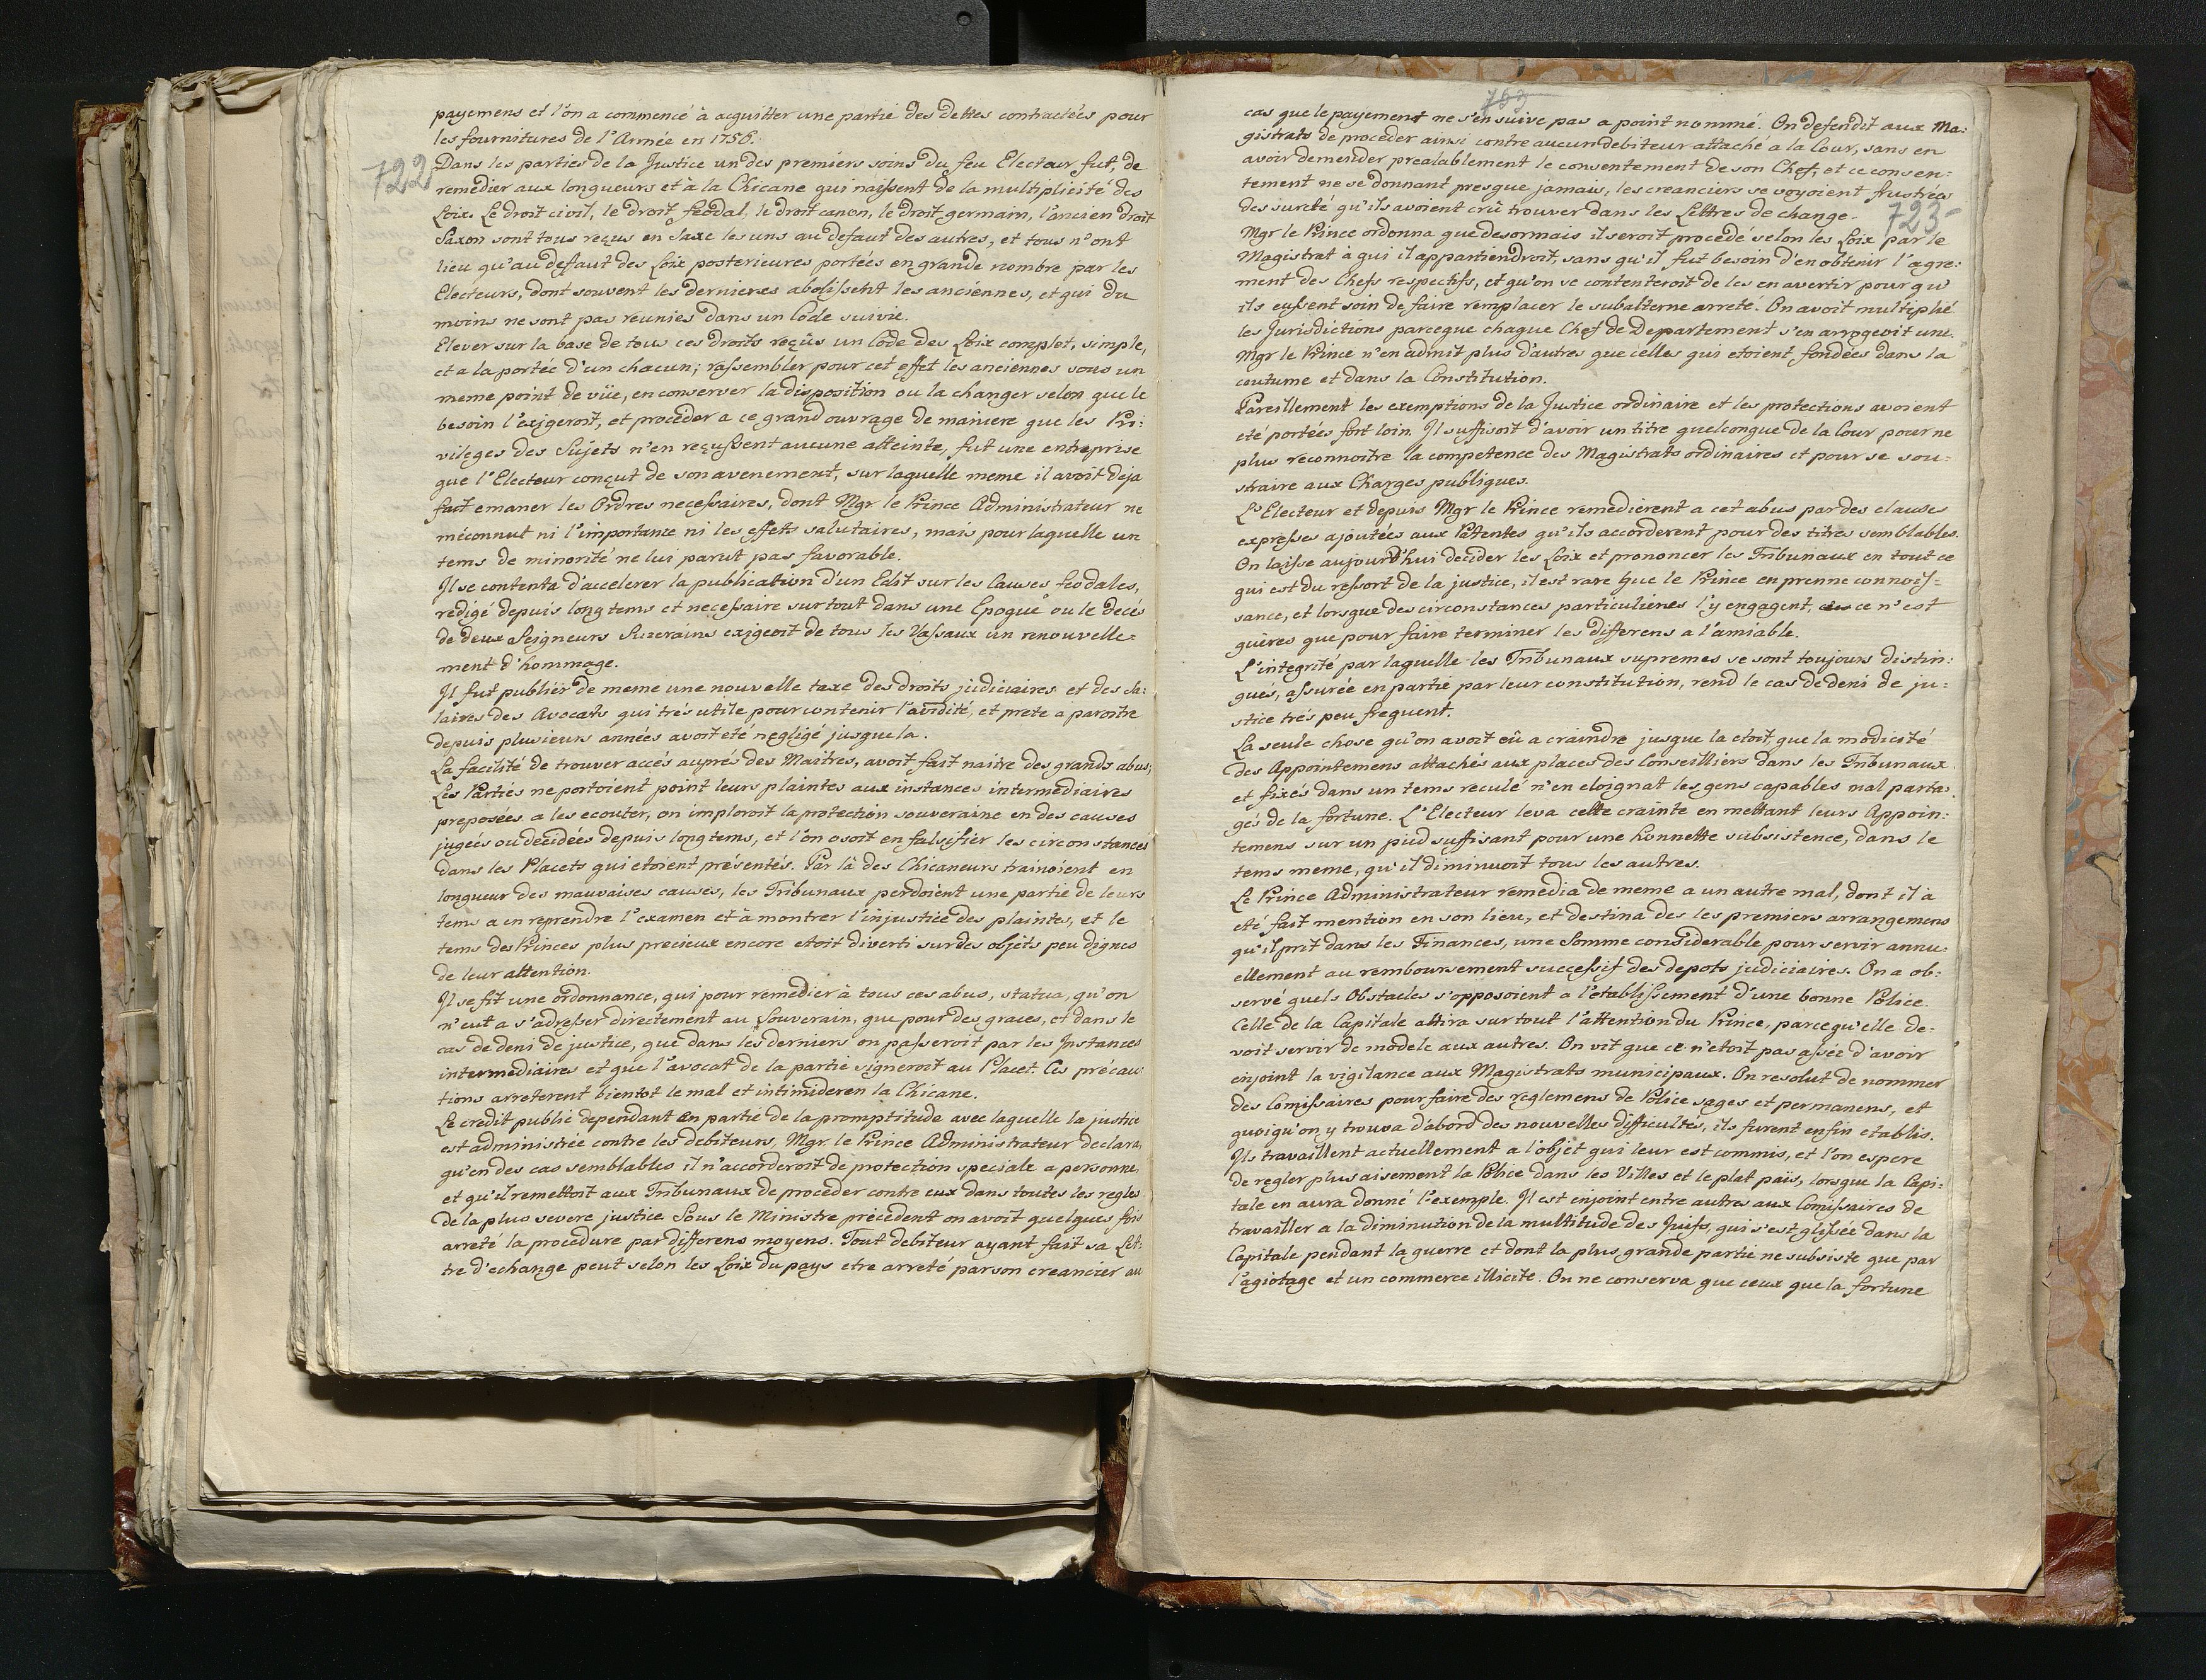 payemens et l'on a commencé à acquitter une partie des dettes contractées pour
les fournitures de l'Armée en 1756.
722
Dans les parties de la Justice un des premiers soins du feu Electeur fut, de
remedier aux longueurs et à la Chicane qui naissent de la multiplicité des
Loix. Le droit civil, le droit feodal, le droit canon, le droit germain, l'ancien droit
Saxon sont tous reçus en Saxe les uns au defaut des autres, et tous n'ont
lieu qu'au defaut des Loix posterieures portées en grande nombre par les
Electeurs, dont souvent les dernieres abolissent les anciennes, et qui du
moins ne sont pas reunies dans un Code suivie.
Elever sur la base de tous ces droits reçûs un Code des Loix complet, simple,
et a la portée d'un chacun; rassembler pour cet effet les anciennes sous un
meme point de vüe, en conserver la disposition ou la changer selon que le
besoin l'exigeroit, et proceder a ce grand ouvrage de maniere que les Pri:
vileges des Sujets n'en reçussent aucune atteinte, fut une entreprise
que l'Electeur conçut de son avenement, sur laquelle meme il avoit deja
fait emaner les Ordres necessaires, dont Mgr le Prince Administrateur ne
méconnut ni l'importance ni les effets salutaires, mais pour laquelle un
tems de minorité ne lui parut pas favorable.
Il se contenta d'accelerer la publication d'un Edit sur les Causes feodales,
redigé depuis long tems et necessaire sur tout dans une Epoque ou le decés
de deux Seigneurs Suzerains exigeoit de tous les Vassaux un renouvelle=
ment d'hommage.
Il fut publiér de meme une nouvelle taxe des droits judiciaires et des sa:
laires des Avocats qui trés utile pour contenir l'avidité, et prete a paroitre
depuis plusieurs années avoit été negligé jusque la.
La facilité de trouver accés auprés des Maitres, avoit fait naitre des grands abus;
Les Parties ne portoient point leurs plaintes aux instances intermediaires
preposées a les ecouter, on imploroit la protection souveraine en des causes
jugées ou decidées depuis long tems, et l'on osoit en falsifier les circonstances
dans les Placets qui etoient présentés. Par là des Chicaneurs trainoient en
longueur des mauvaises causes, les Tribunaux perdoient une partie de leurs
tems a en reprendre l'examen et à montrer l'injustice des plaintes, et le
tems des Princes plus precieux encore etoit diverti sur des objets peu dignes
de leur attention.
Il se fit une ordonnance, qui pour remedier à tous ces abus, statua, qu'on
n'eut a s'adresser directement au Souverain, que pour des graces, et dans le
cas de deni de justice, que dans les derniers on passeroit par les Instances
intermediaires et que l'avocat de la partie signeroit au Placet. Ces précau:
tions arreterent bientot le mal et intimideren la Chicane.
Le credit public dependant en partie de la promptitude avec laquelle la justice
est administrée contre les debiteurs, Mgr. le Prince Administrateur declara,
qu'en des cas semblables il n'accorderoit de protection speciale a personne
et qu'il remettoit aux Tribunaux de proceder contre eux dans toutes les regles
de la plus severe justice Sous le Ministre précedent on avoit quelques fois
arreté la procedure par differens moyens. Tout debiteur ayant fait sa Let:
tre d'echange peut selon les Loix du pays etre arreté par son creancier au
753
cas que le payement ne s'en suive pas a point nommé. On defendit aux Ma:
gistrats de proceder ainsi contre aucun debiteur attaché a la Cour, sans en
avoir demender prealablement le consentement de son Chef, et ce consen:
tement ne se donnant presque jamais, les creanciers se voyoient frustrées
des sureté qu'ils avoient crû trouver dans les Lettres de change.
723
Mgr le Prince ordonna que desormais il seroit procedé selon les Loix par le
Magistrat à qui il appartiendroit, sans qu'il fut besoin d'en obtenir l'agre:
ment des Chefs respectifs, et qu'on se contenteroit de les en avertir pour qu'
ils eussent soin de faire remplacer le subalterne arreté. On avoit multiplié
les Jurisdictions parceque chaque Chef de Departement s'en arrogeoit une.
Mgr le Prince n'en admit plus d'autres que celles qui etoient fondées dans la
coutume et dans la Constitution.
Pareillement les exemptions de la Justice ordinaire et les protections avoient
eté portées fort loin. Il suffisoit d'avoir un titre quelconque de la Cour pour ne
plus reconnoitre la competence des Magistrats ordinaires et pour se sou:
straire aux Charges publiques.
L'Electeur et depuis Mgr le Prince remedierent a cet abus par des clauses
expresses ajoutées aux Patentes qu'ils accorderent pour des titres semblables.
On laisse aujourd'hui decider les Loix et prononcer les Tribunaux en tout ce
qui est du ressort de la justice, il est rare que le Prince en prenne connois=
sance, et lorsque des circonstances particulieres l'y engagent, ce n'est
guères que pour faire terminer les differens a l'amiable.
L'integrité par laquelle les Tribunaux supremes se sont toujours distin:
gues, assurée en partie par leur constitution, rend le cas de deni de ju=
stice trés peu frequent.
La seule chose qu'on avoit eû a craindre jusque la etoit, que la modicité
des Appointemens attachés aux places des Conseilliers dans les Tribunaux
et fixés dans un tems reculé n'en eloignat les gens capables mal parta:
gés de la fortune. L'Electeur leva cette crainte en mettant leurs Appoin:
temens sur un pied suffisant pour une honnette subsistence, dans le
tems meme, qu'il diminuoit tous les autres.
Le Prince Administrateur remedia de meme a un autre mal, dont il a
eté fait mention en son lieu, et destina des les premiers arrangemens
qu'il prit dans les Finances, une Somme considerable pour servir annu:
ellement au remboursement successif des depots judiciaires. On a ob:
servé quels Obstacles s'opposoient a l'etablissement d'une bonne Police.
Celle de la Capitale attira sur tout l'attention du Prince, parcequ'elle de:
voit servir de modele aux autres. On vit que ce n'etoit pas assée d'avoir
enjoint la vigilance aux Magistrats municipaux. On resolut de nommer
des Comissaires pour faire des réglemens de Police sages et permanens, et
quoiqu'on y trouva d'abord des nouvelles difficultés, ils furent enfin etablis.
Ils travaillent actuellement a l'objet qui leur est commis, et l'on espere
de regler plus aisement la Police dans les Villes et le plat païs, lorsque la Capi:
tale en aura donné l'exemple. Il est enjoint entre autres aux Comissaires de
travailler a la diminution de la multitude des Juifs, qui s'est glissée dans la
Capitale pendant la guerre et dont la plus grande partie ne subsiste que par
l'agiotage et un commerce illicite. On ne conserva que ceux que la fortune